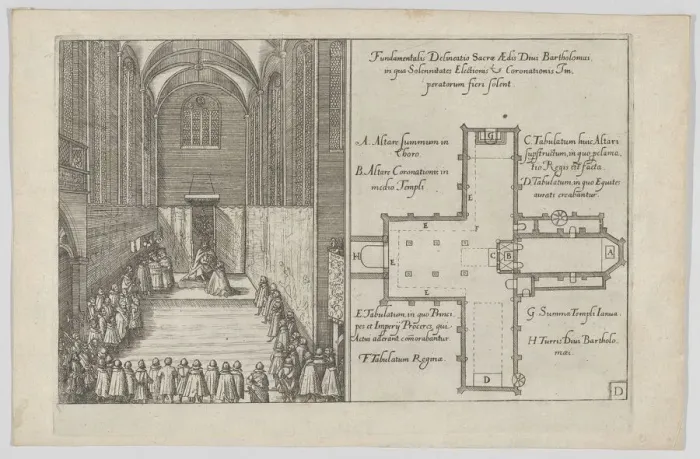 Fundamentalis Delineatio Sacræ Ædis Divi Bartholomæi,
in qua Solennitates Electionis & Coronationis Im,
peratorum fieri solent.
A. Altare summum in
Choro.
B. Altare Coronationis in
medio Templi
C. Tabulatum huic Altari
superstructum, in quo
Regis est facta.
D. Tabulatum, in quo Equites
aurati creabantur.
G
E
F
H
E
C
B
A
E
E. Tabulatum in quo Princi,
pes et Imperij Proceres, qui
Actui aderant, comorabantur
F. Tabulatum Reginæ.
G. Summa Templi Ianua.
H. Turris Divi Bartholo,
mæi.
D
D